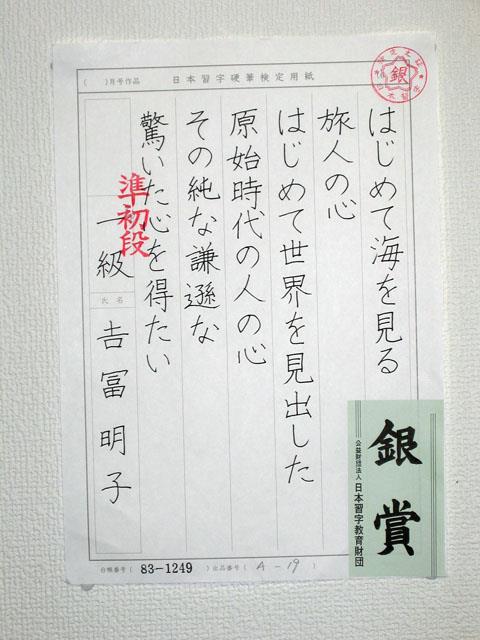 (　　)月号作品
日本習字硬筆検定用紙
銀
はじめて海を見る
旅人の心
はじめて世界を見出した
原始時代の人の心
その純な謙遜な
驚いた心を得たい
準初段
一級
氏名
吉冨明子
銀賞
公益財団法人 日本習字教育財団
台帳番号( 83-1249 )出品番号( A-19 )